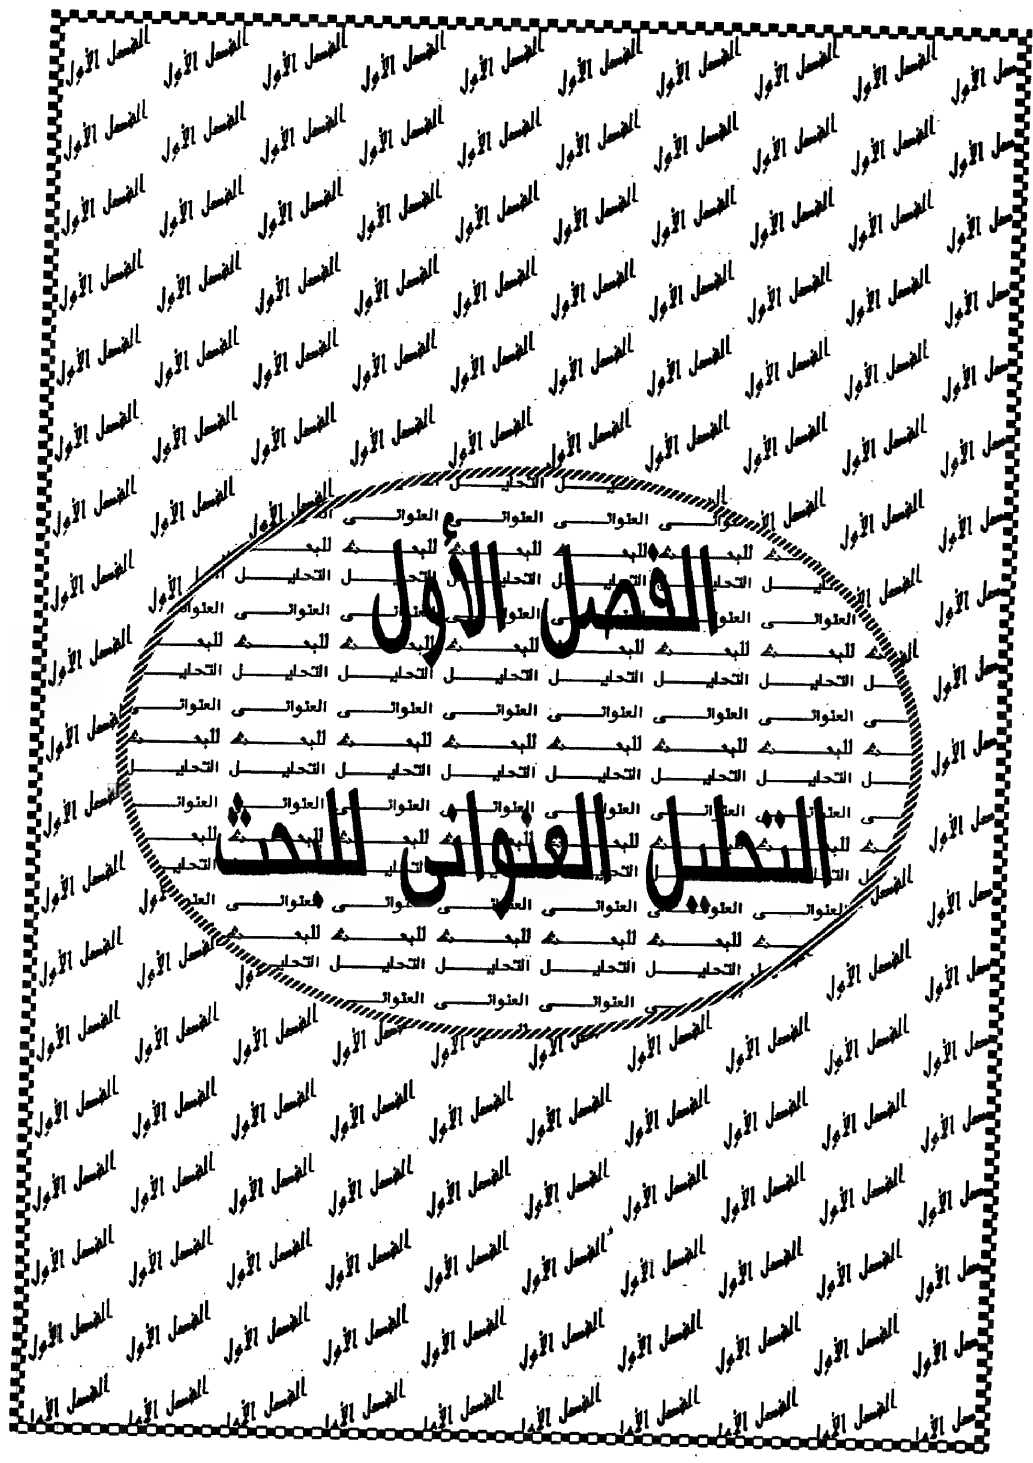 الفصل الأول
التحليل العنوانى للبحث